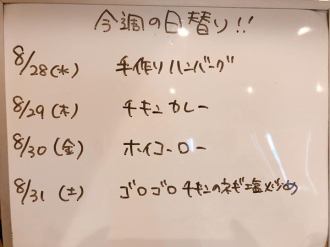 今週の日替り!!
8/28(水) 手作りハンバーグ
8/29(木) チキンカレー
8/30(金) ホイコーロー
8/31(土) ゴロゴロチキンのネギ塩炒め